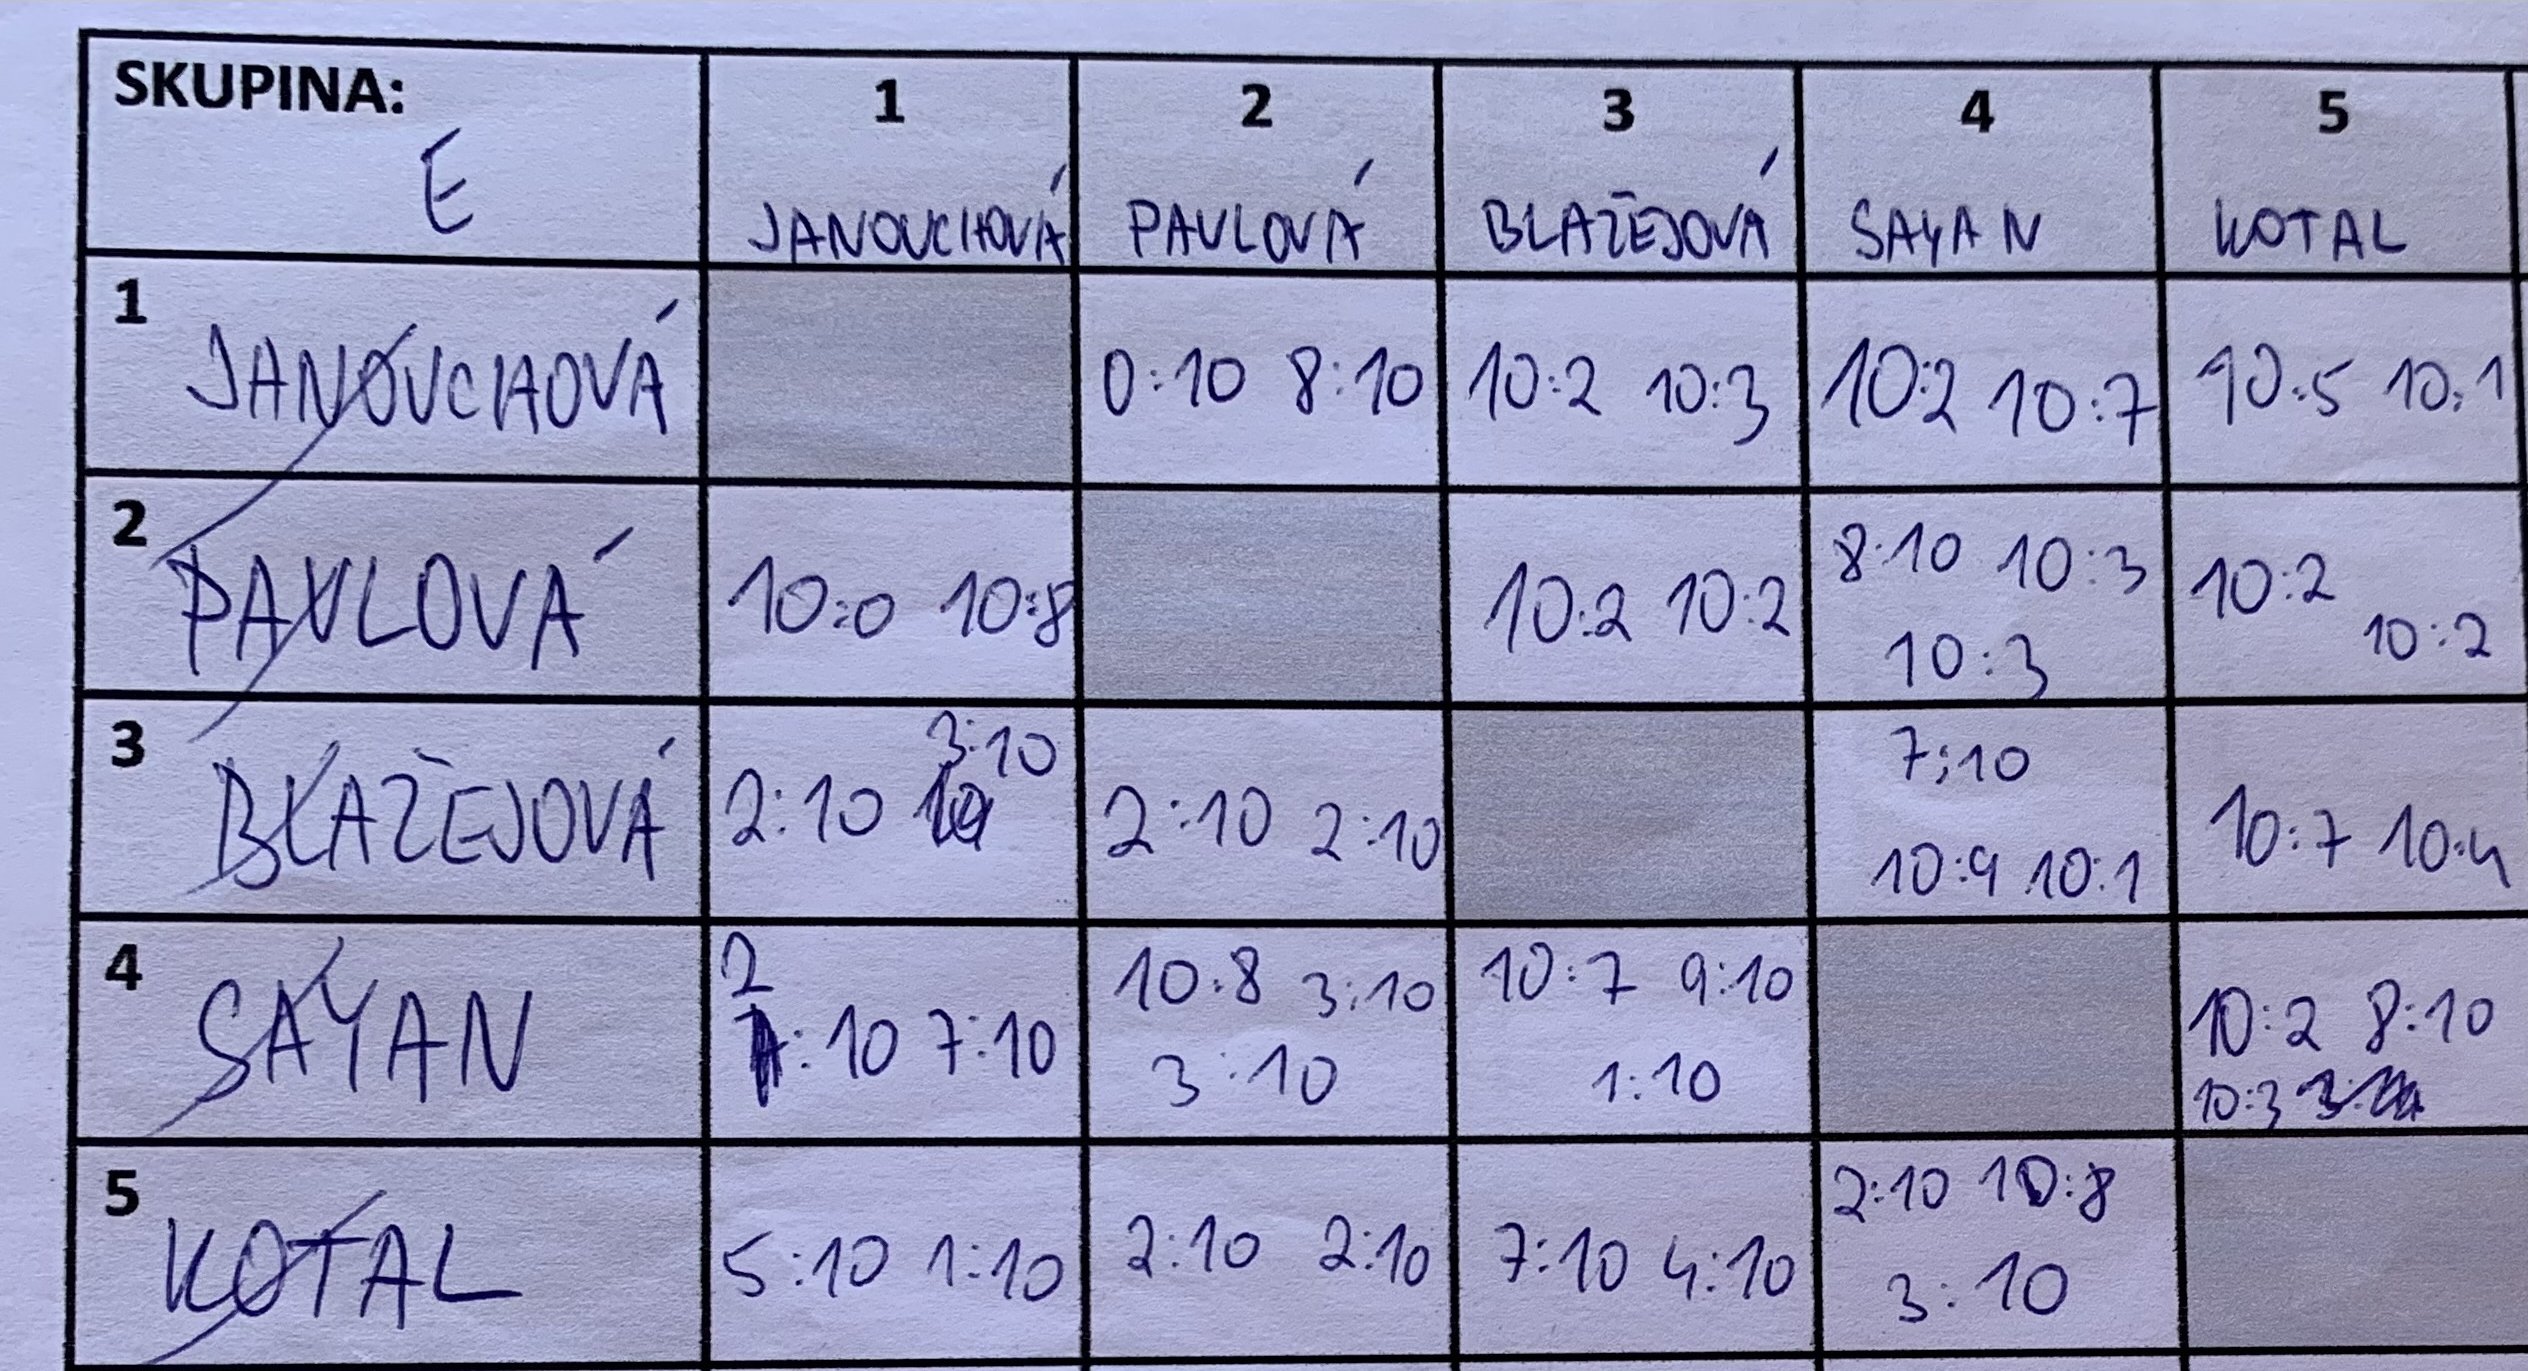 SKUPINA: 1 2 3 4 5
E JANOUCHOVÁ PAVLOVÁ BLAŽEJOVÁ SAYAN KOTAL
1 JANOUCHOVÁ 0:10 8:10 10:2 10:3 10:2 10:7 10:5 10:1
2 PAVLOVÁ 10:0 10:8 10:2 10:2 8:10 10:3 10:2
10:3 10:2
3 BLAŽEJOVÁ 3:10 7:10
2:10 2:10 2:10 10:9 10:1 10:7 10:4
4 SAYAN 2 10:8 3:10 10:7 9:10 10:2 8:10
:10 7:10 3:10 1:10 10:3
5 KOTAL 5:10 1:10 2:10 2:10 7:10 4:10 2:10 10:8
3:10